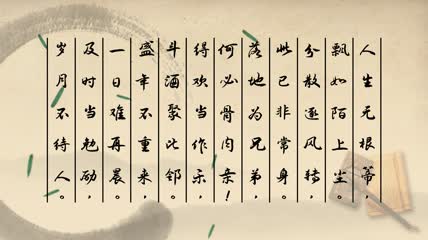 人生无根蒂，
飘如陌上尘。
分散逐风转，
此已非常身。
落地为兄弟，
何必骨肉亲！
得欢当作乐，
斗酒聚比邻。
盛年不重来，
一日难再晨。
及时当勉励，
岁月不待人。